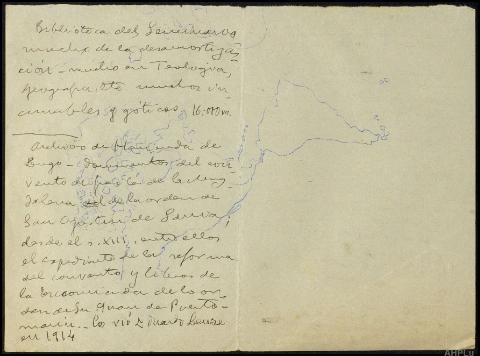 Biblioteca del Seminario
mucho de la desamortiza-
ción - mucho en Teología,
geografía, etc muchos in-
cunables y góticos, 16.000 m.
Archivo de Hacienda de
Lugo - documentos del con-
vento de la Mag-
dalena de la orden de
San Agustín de Sarria,
desde el s. XIII, entre ellos
el expediente de la reforma
del convento y libros de
la Encomienda de la or-
den de Sn Juan de Puerto-
marín. - Lo vió
en 1914
AHPLu